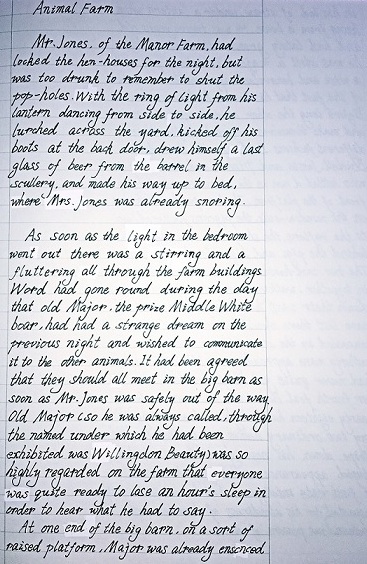 Animal Farm
Mr. Jones, of the Manor Farm, had
locked the hen-houses for the night, but
was too drunk to remember to shut the
pop-holes. With the ring of light from his
lantern dancing from side to side, he
lurched across the yard, kicked off his
boots at the back door, drew himself a last
glass of beer from the barrel in the
scullery, and made his way up to bed,
where Mrs. Jones was already snoring.
As soon as the light in the bedroom
went out there was a stirring and a
fluttering all through the farm buildings
Word had gone round during the day
that old Major, the prize Middle White
boar, had had a strange dream on the
previous night and wished to communicate
it to the other animals. It had been agreed
that they should all meet in the big barn as
soon as Mr. Jones was safely out of the way
Old Major (so he was always called, through
the named under which he had been
exhibited was Willingdon Beauty) was so
highly regarded on the farm that everyone
was quite ready to lase an hour's sleep in
order to hear what he had to say.
At one end of the big barn, on a sort of
raised platform, Major was already ensonced